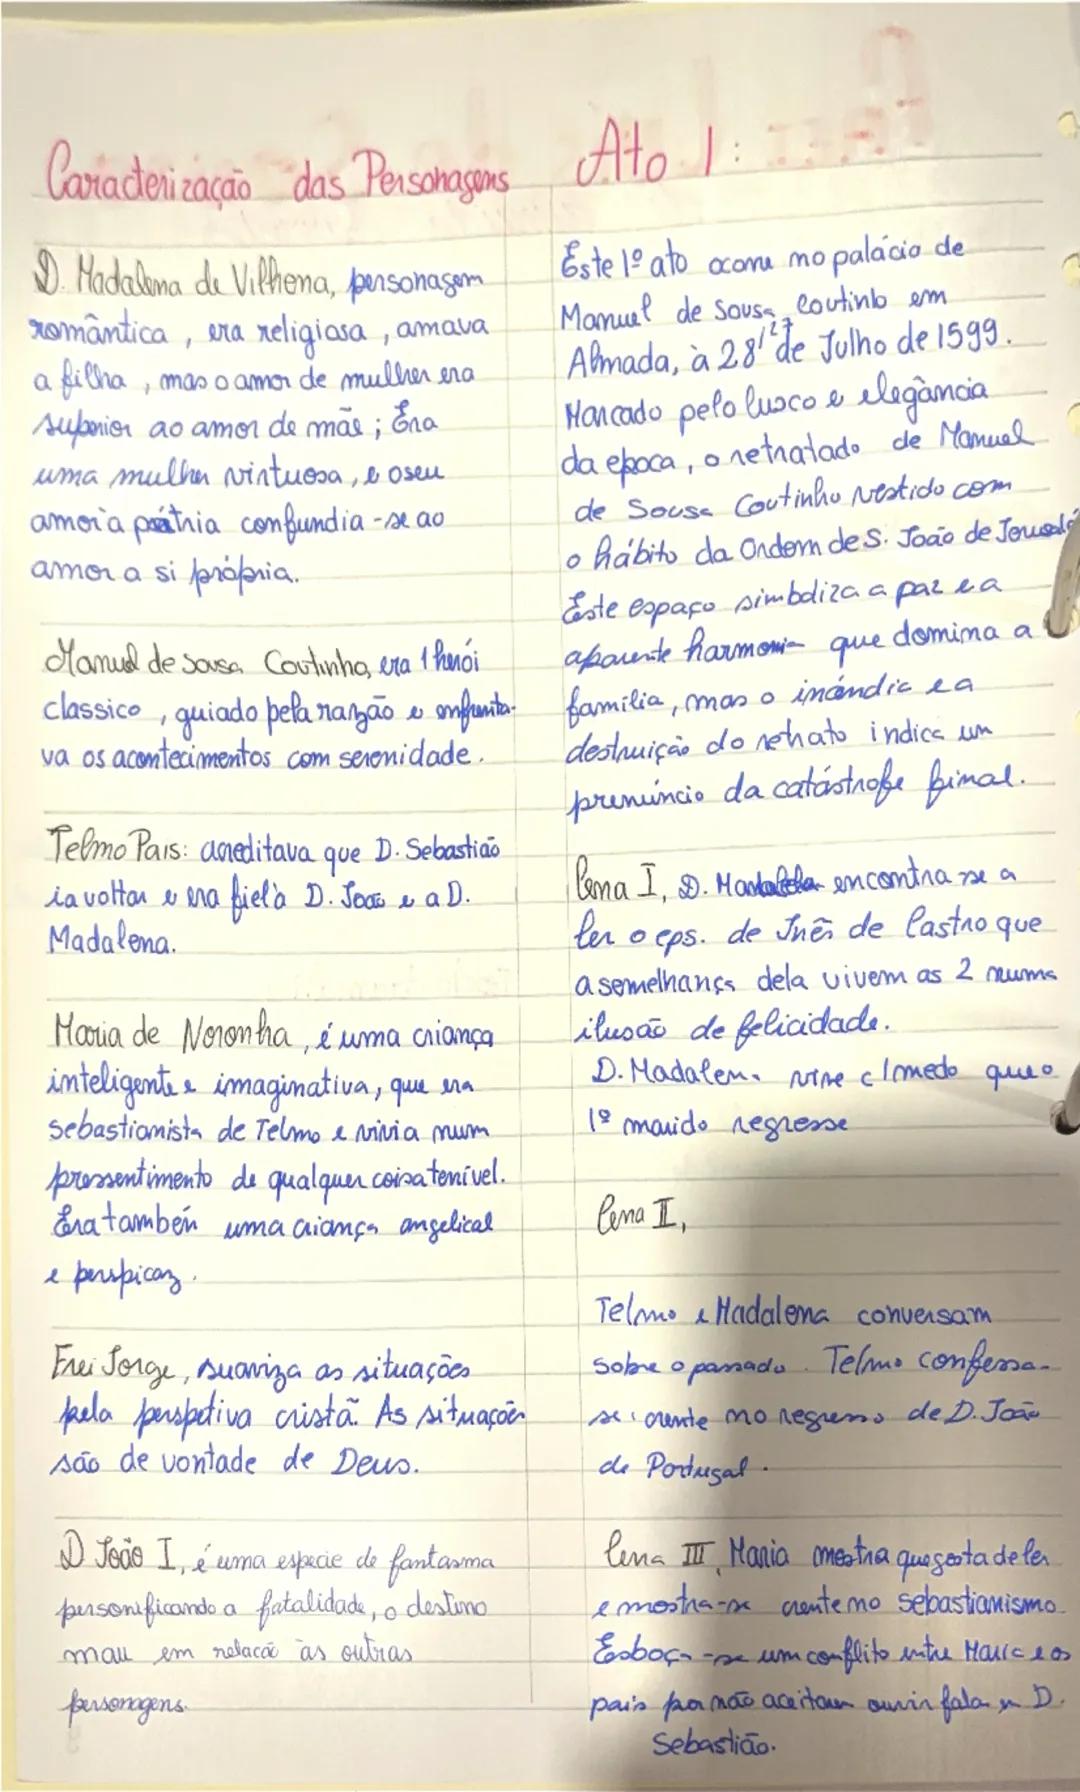 Caracterização das Personagens
D. Madalena de Vilhena, personagem
romântica, era religiosa, amava
a filha, mas o amor de mulher era
superior ao amor de mãe; Era
uma mulher virtuosa, e o seu
amor à pátria confundia-se ao
amor a si própria.
Manuel de Sousa Coutinho, era 1 herói
classico, guiado pela razão e enfrenta-
va os acontecimentos com serenidade.
Telmo Pais: acreditava que D. Sebastião
ia voltar e era fiel à D. João e a D.
Madalena.
Maria de Noronha, é uma criança
inteligente e imaginativa, que era
sebastianista de Telmo e vivia num
pressentimento de qualquer coisa tenível.
Era também uma criança angelical
e perspicaz.
Frei Jorge, suaviza as situações
pela perspetiva cristã. As situações
são de vontade de Deus.
D João I, é uma especie de fantasma
personificando a fatalidade, o destino
mau em relacão às outras
personagens.
Ato 1:
Este 1º ato ocorre no palácio de
Manuel de Sousa Coutinho em
Almada, à 28/27 de Julho de 1599.
Marcado pelo luxo e elegância
da epoca, o retratado de Manuel
de Sousa Coutinho vestido com
o hábito da Ordem de S. João de Jerusalé
Este espaço simboliza a paz e a
aparente harmonia que domina a
família, mas o incêndio e a
destruição do retrato indica um
prenúncio da catástrofe final.
Cena I, D. Madalela encontra-se a
ler o eps. de Inês de Castro que
a semelhança dela vivem as 2 numa
ilusão de felicidade.
D. Madalena vive c/medo que o
1º marido regresse
Cena II,
Telmo e Madalena conversam
sobre o passado. Telmo confessa-
se crente no regresso de D. João
de Portugal.
Cena III, Maria mostra que gosta de ler
e mostra-se crente no Sebastianismo.
Esboça-se um conflito entre Maria e os
pais por não aceitarem ouvir falar em D.
Sebastião.